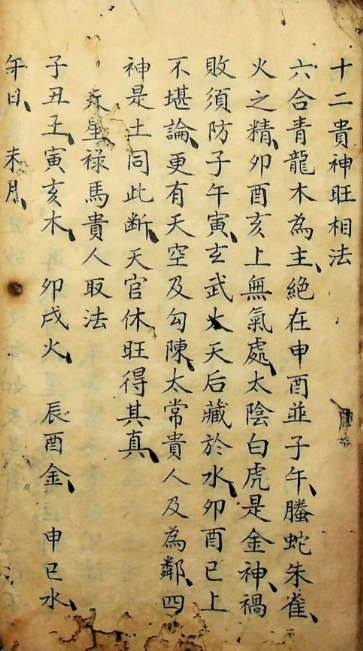 十二貴神旺相法
六合青龍木為主、絕在申酉並子午、螣蛇朱雀、
火之精、卯酉亥上無氣處、太陰白虎是金神、禍
敗須防子午寅、玄武大天后藏於水、卯酉巳上
不堪論、更有天空及勾陳、太常貴人及為鄰、四
神是土同此断、天官休旺得其真、
祿馬貴人取法
子丑土、寅亥木、卯戌火、辰酉金、申巳水、
午日、未月、